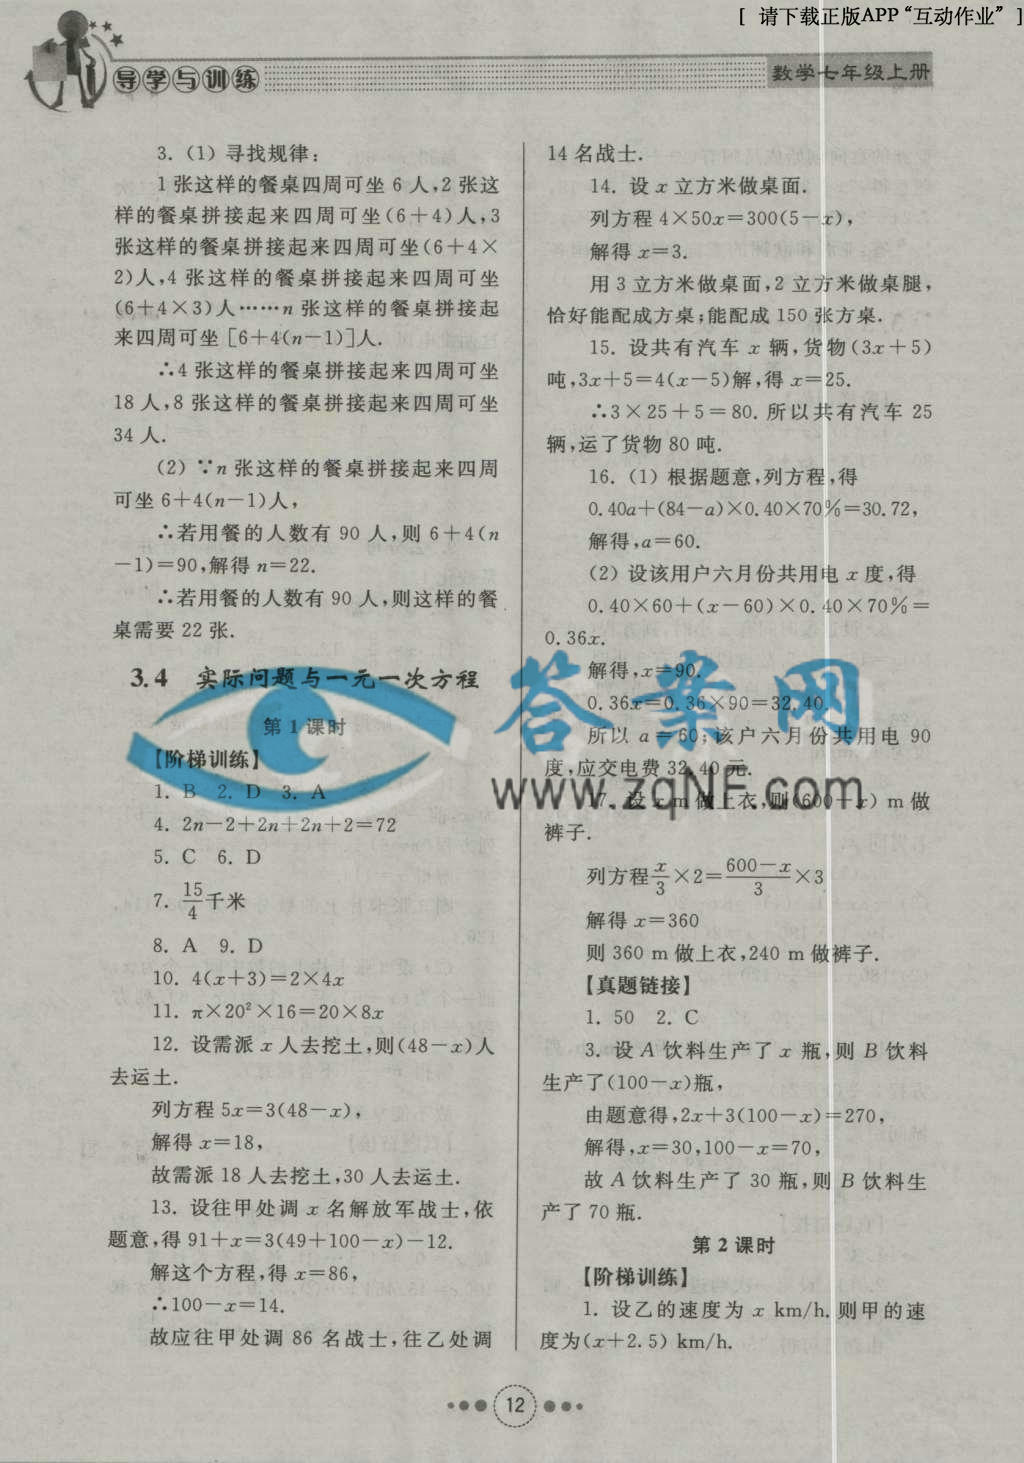 [ 请下载正版APP“互动作业” ]
导学与训练
数学七年级上册
3. (1) 寻找规律:
1 张这样的餐桌四周可坐 6 人,2 张这
样的餐桌拼接起来四周可坐(6+4)人,3
张这样的餐桌拼接起来四周可坐(6+4×
2)人,4 张这样的餐桌拼接起来四周可坐
(6+4×3)人……n 张这样的餐桌拼接起
来四周可坐[6+4(n-1)]人.
∴4 张这样的餐桌拼接起来四周可坐
18 人,8 张这样的餐桌拼接起来四周可坐
34 人.
(2) ∵n 张这样的餐桌拼接起来四周
可坐 6+4(n-1)人,
∴若用餐的人数有 90 人,则 6+4(n
-1)=90,解得 n=22.
∴若用餐的人数有 90 人,则这样的餐
桌需要 22 张.
3.4 实际问题与一元一次方程
第 1 课时
【阶梯训练】
1. B 2. D 3. A
4. 2n-2+2n+2n+2=72
5. C 6. D
7. 15/4千米
8. A 9. D
10. 4(x+3)=2×4x
11. π×20²×16=20×8x
12. 设需派 x 人去挖土,则(48-x)人
去运土.
列方程 5x=3(48-x),
解得 x=18,
故需派 18 人去挖土,30 人去运土.
13. 设往甲处调 x 名解放军战士,依
题意,得 91+x=3(49+100-x)-12.
解这个方程,得 x=86,
∴100-x=14.
故应往甲处调 86 名战士,往乙处调
14 名战士.
14. 设 x 立方米做桌面.
列方程 4×50x=300(5-x),
解得 x=3.
用 3 立方米做桌面,2 立方米做桌腿,
恰好能配成方桌;能配成 150 张方桌.
15. 设共有汽车 x 辆,货物(3x+5)
吨,3x+5=4(x-5)解,得 x=25.
∴3×25+5=80. 所以共有汽车 25
辆,运了货物 80 吨.
16. (1) 根据题意,列方程,得
0.40a+(84-a)×0.40×70%=30.72,
解得,a=60.
(2) 设该用户六月份共用电 x 度,得
0.40×60+(x-60)×0.40×70%=
0.36x.
解得,x=90.
0.36x=0.36×90=32.40.
所以 a=60;该户六月份共用电 90
度,应交电费 32.40 元.
17. 设 x m 做上衣,则(600-x) m 做
裤子.
列方程x/3×2=(600-x)/3×3
解得 x=360
则 360 m 做上衣,240 m 做裤子.
【真题链接】
1. 50 2. C
3. 设 A 饮料生产了 x 瓶,则 B 饮料
生产了(100-x)瓶,
由题意得,2x+3(100-x)=270,
解得,x=30,100-x=70,
故 A 饮料生产了 30 瓶,则 B 饮料生
产了 70 瓶.
第 2 课时
【阶梯训练】
1. 设乙的速度为 x km/h. 则甲的速
度为(x+2.5) km/h.
12
答案网
www.zqNF.com